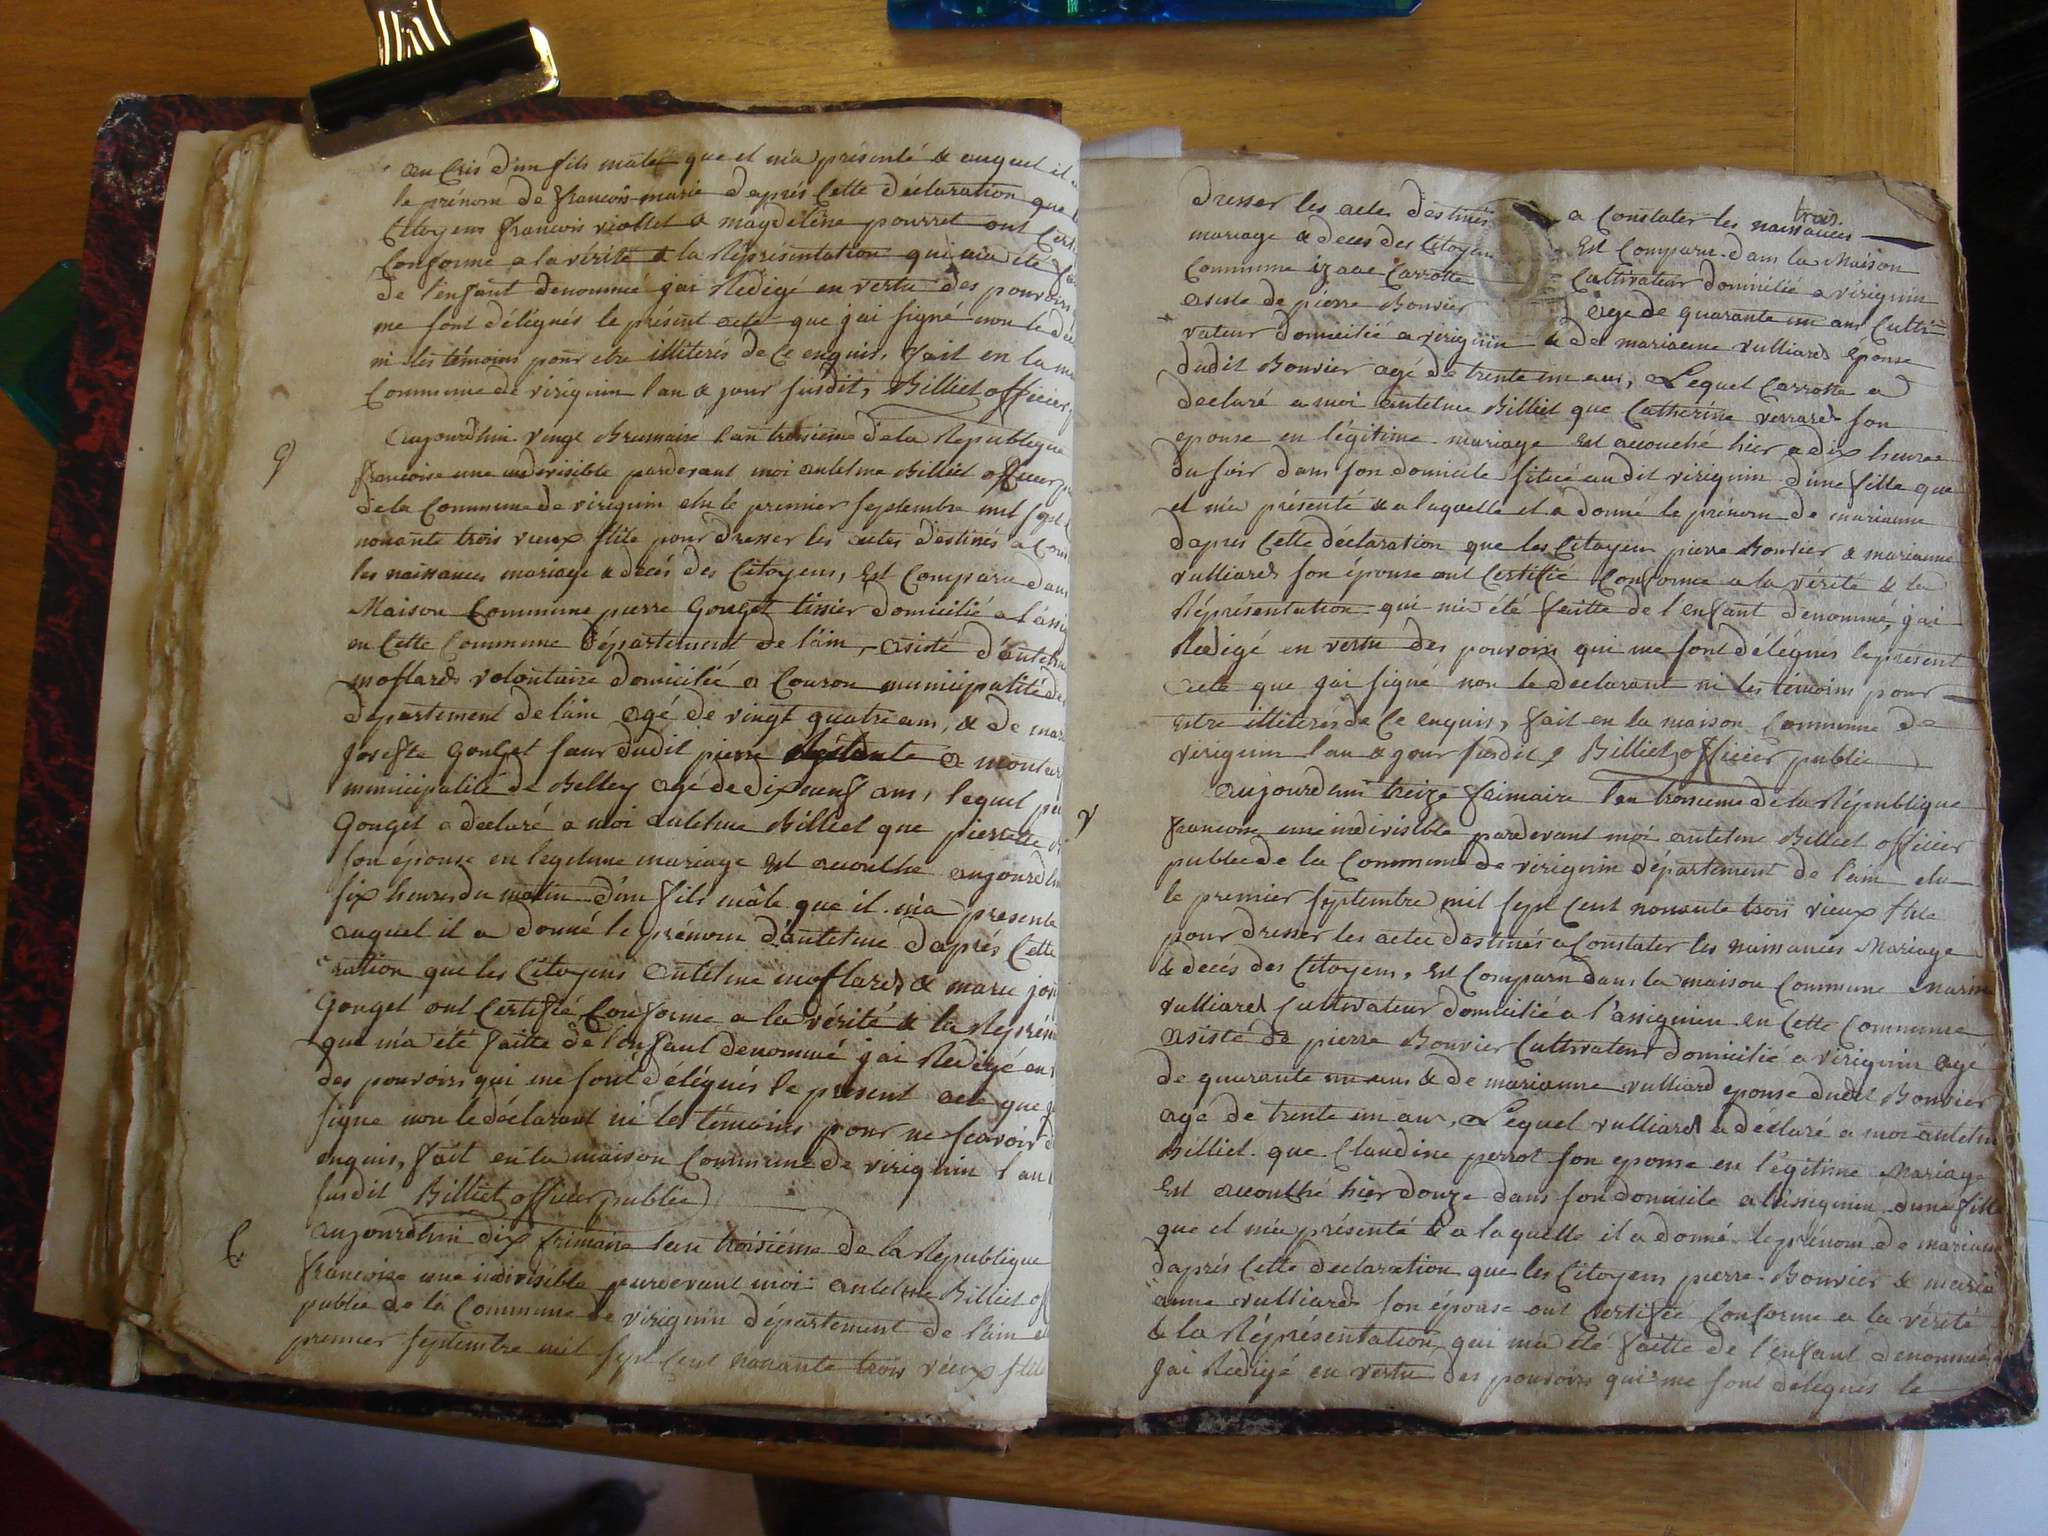 au Cris d'un fils mâle que il m'a présenté & auquel il a
le prénom de françois-marie daprès Cette déclaration que
Citoyens françois viollet & magdeleine pourret ont Cert
Conforme a la vérité & la Réprésentation qui m'a été fai
de l'enfant denommé jai Redigé en vertu des pouvoirs
me sont délégués le présent acte que jai signé non le de
ni les témoins pour etre illiterés de Ce enquis, fait en la m
Commune de virignin l'an & jour susdit, Billiet officier p
G
aujourdhui vingt Brumaire l'an troisième de la Republique
françoise une indivisible pardevant moi antelme Billiet officier p
de la Commune de virignin elu le premier septembre mil sept
nonante trois vieux stile pour dresser les actes destinés a Cons
les naissances mariage & decés des Citoyens, Est Comparu dans
Maison Commune pierre Gouget tissier domicilié a l'assig
en Cette Commune Département de l'ain, Asisté d'antelm
moflard volontaire domicilié a Couron municipalité de
département de l'ain agé de vingt quatre ans, & de mar
josefte Gouget sœur dudit pierre a
municipalité de Belley agé de dix neuf ans, lequel pi
Gouget a declaré a moi antelme Billiet que pierrette
son épouse en legitime mariage Est acouthé aujourdhu
six heures du matin d'un fils mâle que il m'a presenté
auquel il a donné le prénom d'antelme daprés Cette
ration que les Citoyens antelme moflard & marie jos
Gouget ont Certifié Conforme a la vérité & la Représen
que m'a été faitte de l'enfant denommé jai Redigé en v
des pouvoirs qui me sont délégués le présent acte que j
signe non le déclarant ni les témoins pour ne scavoir d
enquis, fait en la maison Commune de virignin l'an
susdit Billiet officier public
C
aujourdhui dix frimaire l'an troisième de la Republique
françoise une indivisible pardevant moi antelme Billiet of
public de la Commune de virignin département de l'ain e
premier septembre mil sept Cent nonante trois vieux stile
dresser les actes destinés a Constater les naissances
mariage & deces des Citoyens Est Comparu dans la Maison
Commune izaac Carrotte Cultivateur domicilié a virignin
asisté de pierre Bouvier agé de quarante un ans Culti
vateur domicilié a virignin & de marianne vulliard épouse
dudit Bouvier agé de trente un ans, Lequel Carrotte a
declaré a moi antelme Billiet que Catherine verrard son
epouse en légitime mariage Est acouché hier a dix heures
du soir dans son domicile situé audit virignin d'une fille que
il m'a présenté & a laquelle il a donné le prénom de marianne
daprés Cette déclaration que les Citoyens pierre Bouvier & marianne
vulliard son épouse ont Certifié Conforme a la vérité & la
Réprésentation qui m'a été faitte de l'enfant denommé, jai
Redigé en vertu des pouvoirs qui me sont délégués le présent
acte que jai signé non le declarant ni les témoins pour
entre illiterés de Ce enquis, fait en la maison Commune de
virignin l'an & jour susdit, Billiet officier public
V
aujourdhui treize faimaire l'an troisieme de la République
françoise une indivisible pardevant moi antelme Billiet officier
public de la Commune de virignin département de l'ain elu
le premier septembre mil sept Cent nonante trois vieux stile
pour dresser les actes destinés a Constater les naissances Mariage
& decés des Citoyens, Est Comparu dans la maison Commune Marin
vulliard Cultivateur domicilié a l'assignin en Cette Commune
Asisté de pierre Bouvier Cultivateur domicilié a virignin agé
de quarante un ans & de marianne vulliard epouse dudit Bouvier
agé de trente un ans, Lequel vulliard a déclaré a moi antelm
Billiet que Claudine perrot son epouse en légitime Mariage
Est acouthé hier douze dans son domicile a l'assignin d'une fille
que il m'a présenté & a laquelle il a donné le prénom de mariann
daprés Cette declaration que les Citoyens pierre Bouvier & mari
anne vulliard son épouse ont Certifié Conforme a la vérité
& la Réprésentation qui m'a été faitte de l'enfant denommé
jai Redigé en vertu des pouvoirs qui me sont délégués le